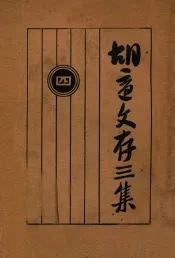 胡適文存三集